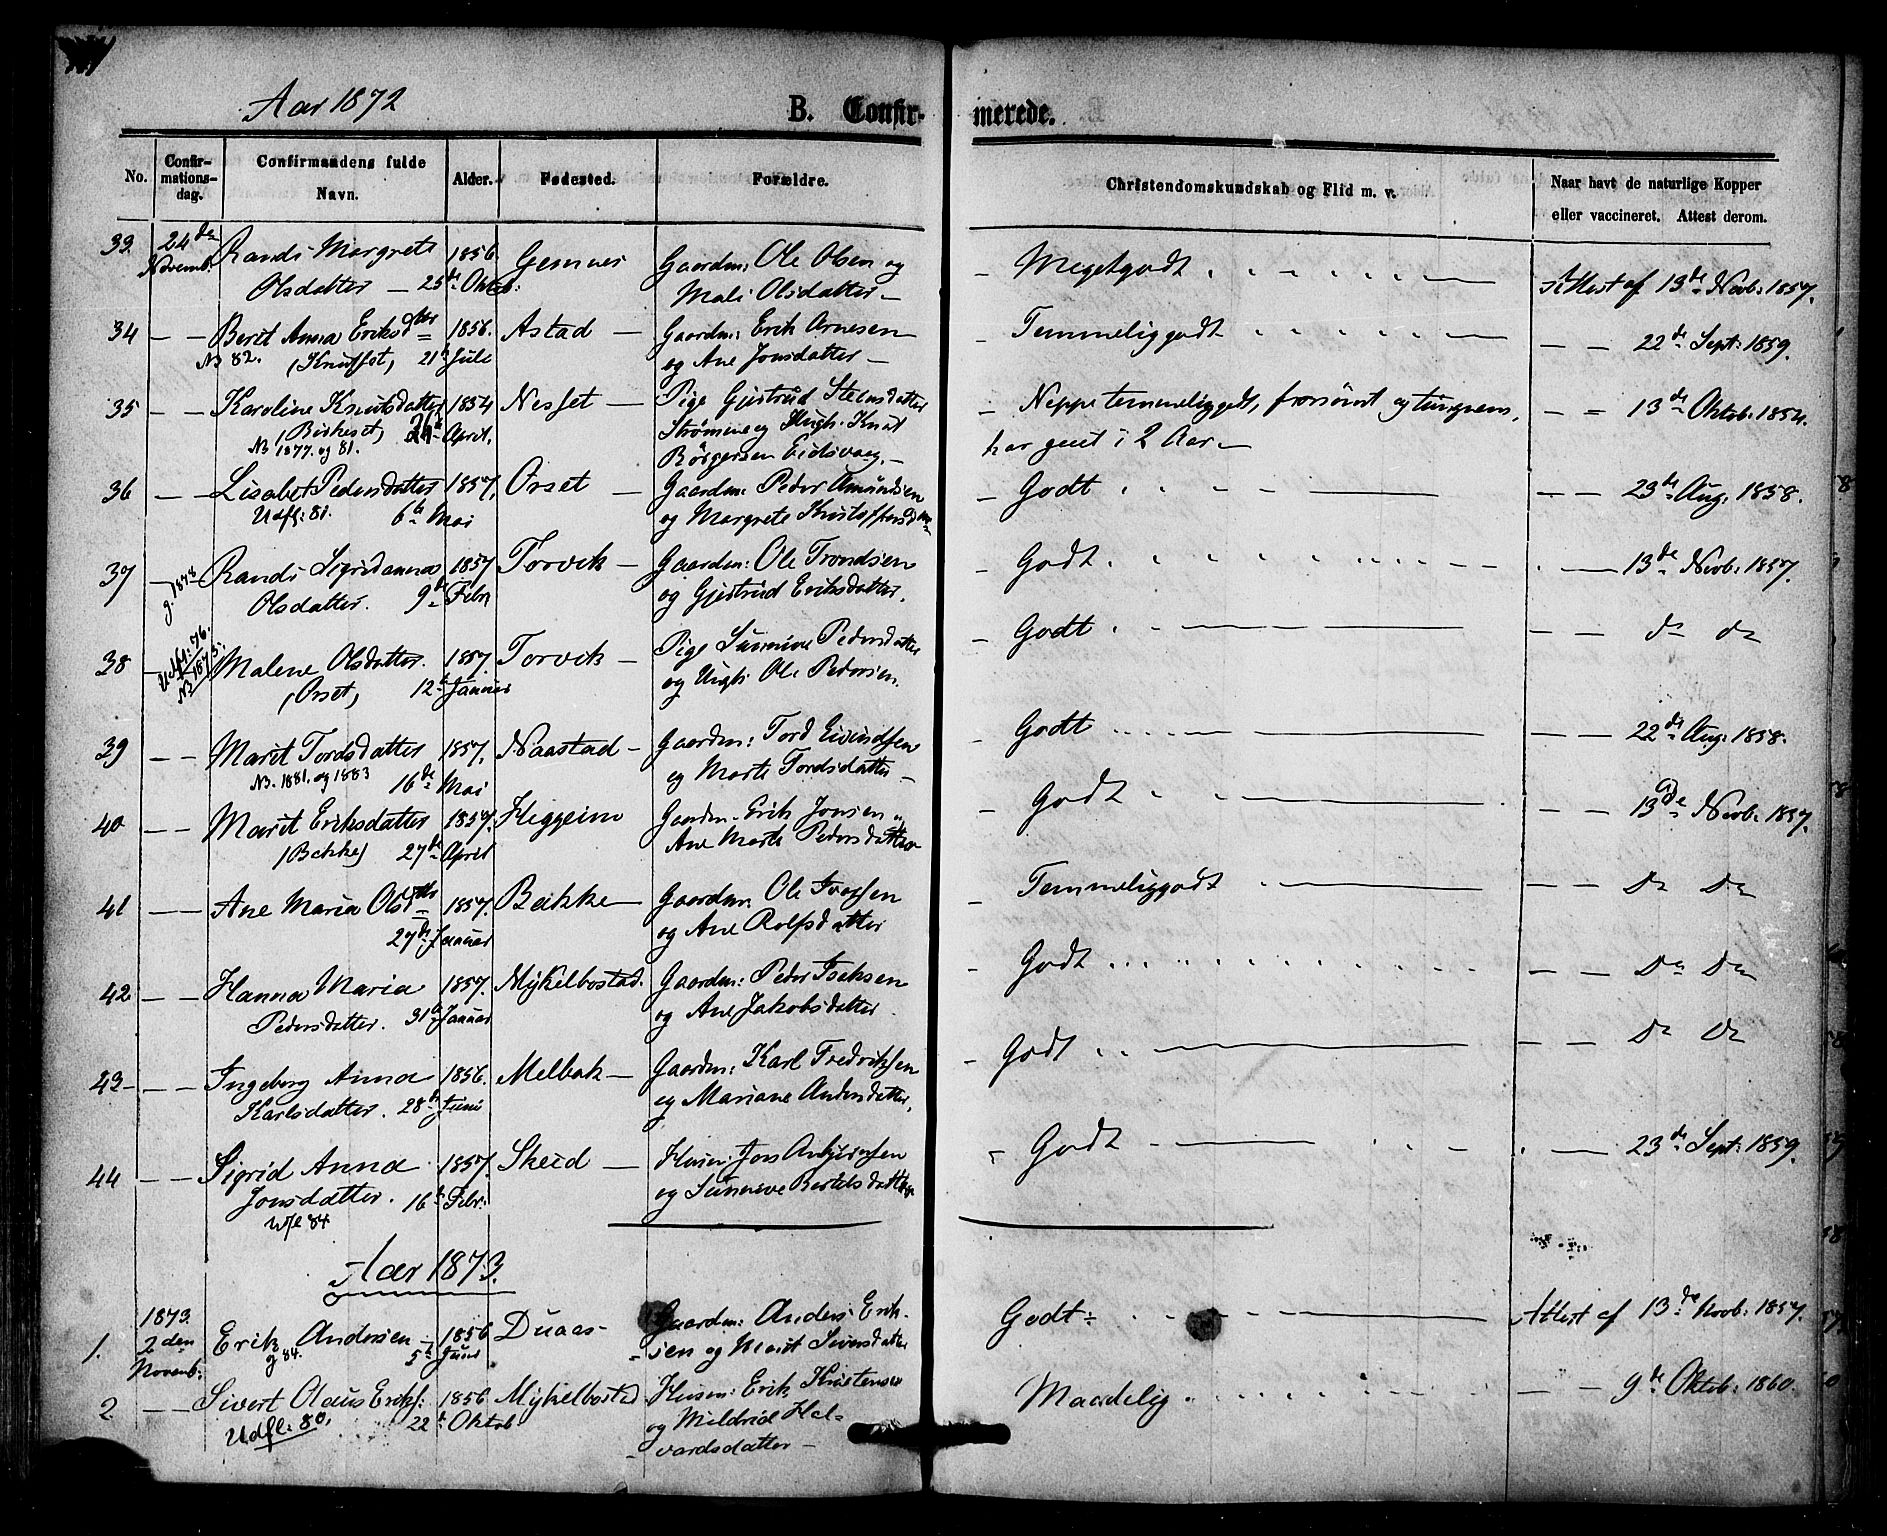 Aar 1872
B. Confir- merede.
No. Confir-mations-dag. Confirmandens fulde Navn. Alder. Fødested. Forældre. Christendomskundskab og Flid m. v. Naar havt de naturlige Kopper eller vaccineret. Attest derom.
33. 24de Novemb. Randi Margrete 1856. Gemnes Gaardm: Ole Olsen og - Megetgodt Attest af 13de Novb: 1857.
Olsdatter — 25de Oktob: Mali Olsdatter —
34 — — Berit Anna Eriksdtr 1856. Astad — Gaardm: Erik Arnesen - Temmeliggodt — — 22de Sept: 1859.
NB 82. (Knutset) 21de Juli og Ane Jonsdatter —
35 — — Karoline Knutsdatter 1854 Nesset — Pige Gjertrud Steensdatter - Neppe temmeliggodt, forsömt og tungnem, — = 13de Oktob: 1854.
(Birkeset) April. Strömme og Ungk. Knut har gaaet i 2 Aar —
NB 1877. og 81. Börgersen Eidsvaag. —
36 — — Lisabet Pedersdatter 1857. Orset — Gaardm: Peder Amundsen - Godt — — 23de Aug: 1858.
Udfl: 81. 6te Mai og Margrete Kristoffersd
37 — g. 1878 Randi Sigridanna 1857 Torvik — Gaardm: Ole Trondsen - Godt — 13de Novb: 1857.
Olsdatter. 9de Febr og Gjertrud Eriksdatter.
38 — Udfl: 76. NB 1875. Malene Olsdatter. 1857. Torvik — Pige Sunnive Pedersdatter - Godt — — do do
(Orset) 12te Januar og Ungk: Ole Pedersen.
39 — — Marit Tordsdatter 1857. Naastad — Gaardm: Tord Eivindsen - Godt 22de Aug: 1858.
NB. 1881. og 1883 16de Mai og Marte Tordsdatter —
40 — — Marit Eriksdatter 1857. Heggeim Gaardm. Erik Jonsen og - Godt — — 13de Novb: 1857.
(Bakke) 27de April Ane Marte Pedersdatter
41 — — Ane Maria Olsdtr 1857. Bakke — Gaardm. Ole Ivarsen - Temmeliggodt — — Do Do
27de Januar og Ane Rolfsdatter
42 — — Hanna Maria 1857. Mykelbostad. Gaardm: Peder Isaksen - Godt — — Do Do
Pedersdatter. 31te Januar og Ane Jakobsdatter
43 — — Ingeborg Anna 1856. Melbak — Gaardm: Karl Fredriksen - Godt — — Do Do
Karlsdatter. 28de Juni og Mariane Andersdatter,
44 — — Sigrid Anna 1857. Skeid — Husm: Jon Anbjörnsen - Godt — 23de Sept: 1859.
Jonsdatter. 16de Febr. og Sunnive Bertelsdatter
Udfl 84
Aar 1873.
1873.
1. 2den Novemb: Erik Andersen — 1856 Duaas — Gaardm: Anders Erik- Godt: Attest af 13de Novb: 1857.
g 84. 5te Juni sen og Marit Siversdatter
2 — — Sivert Olaus Eriks: 1856 Mykelbostad Husm: Erik Kristensen Maadelig — — 9de Oktob: 1860.
Udfl: 80. 22de Oktob og Mildrid Hal-
vardsdatter —